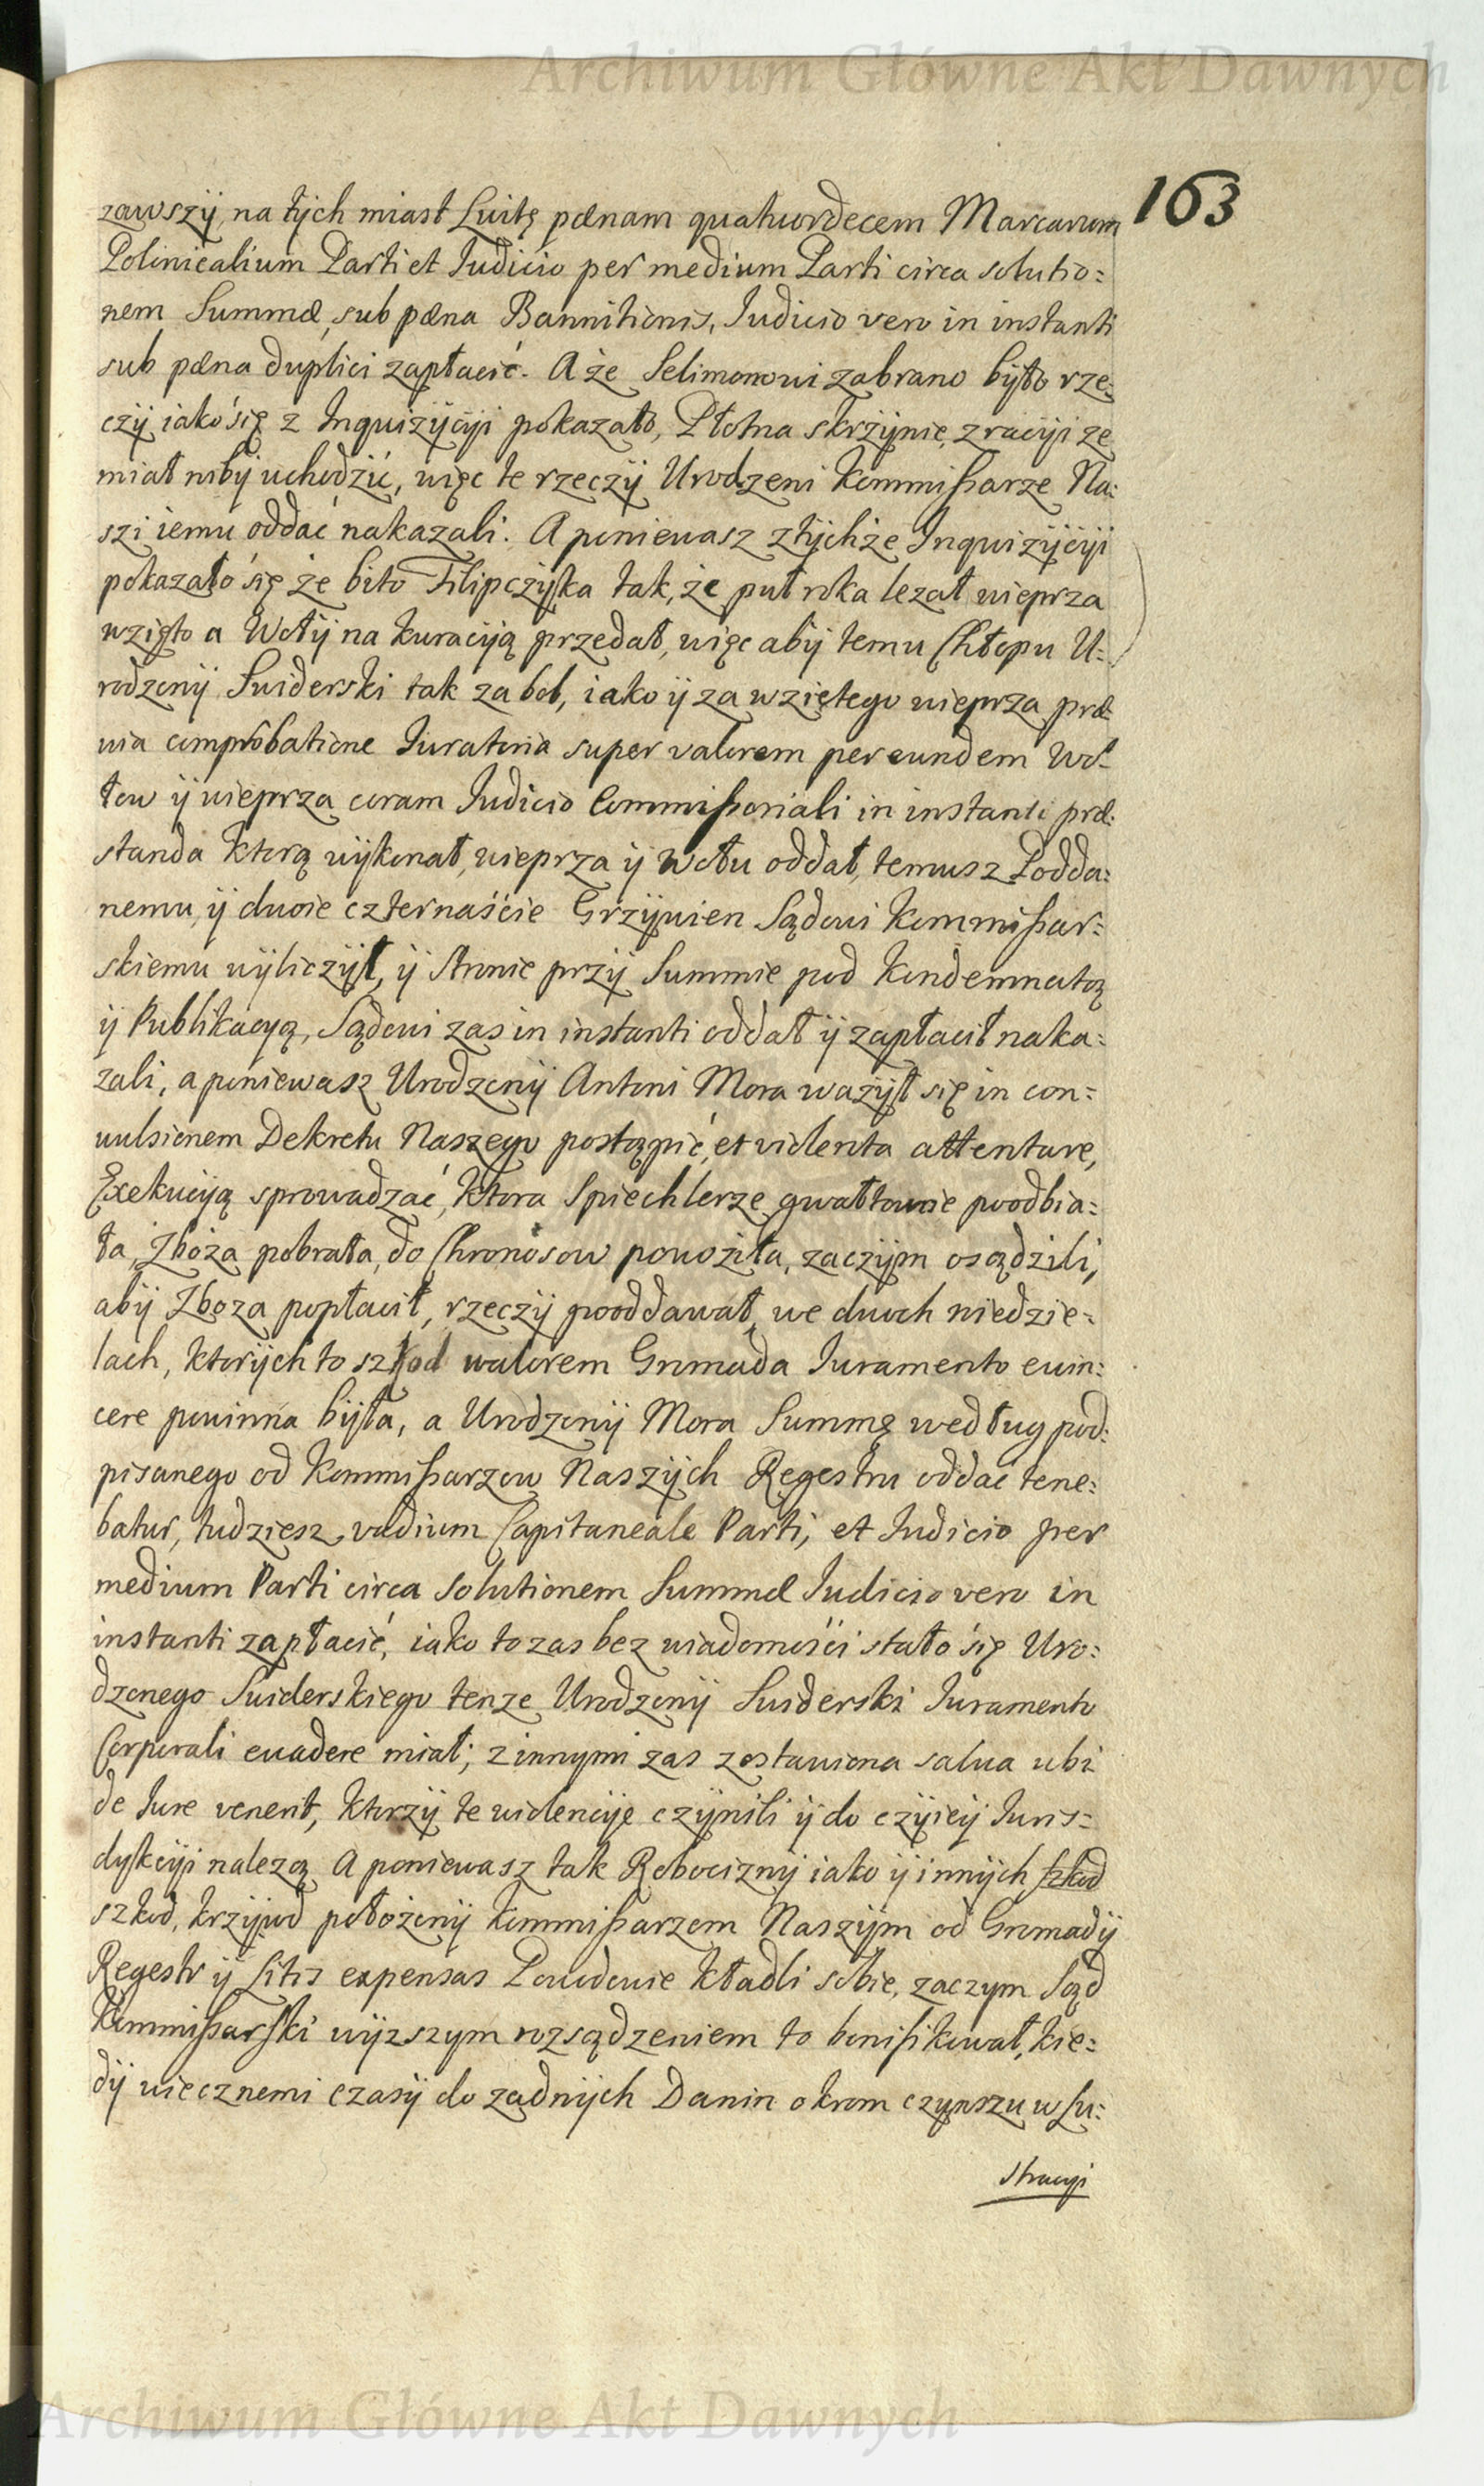 Archiwum Główne Akt Dawnych
163
zawszÿ, na tÿch miast Luitę pænam quatuordecem Marcarum
Polonicalium Parti et Iudicio per medium Parti circa solutio=
nem Summæ, sub pæna Bannitionis, Iudicio vero in instanti
sub pæna duplici zapłacić. A że Selimonowi zabrano bÿło rze=
czÿ iako się z Inquizÿcÿi pokazało, Płotna skrzÿnie, z racÿi ze
miał nibÿ uchodzić, więc te rzeczÿ Urodzeni Kommissarze Na=
szi iemu oddać nakazali. A poniewasz z tÿchże Inquizÿcÿi
pokazało się że bito Filipczÿka tak, że puł roka lezał wieprza
wzięto a Wołÿ na kuracÿią przedał, więc abÿ temu Chłopu U=
rodzonÿ Swiderski tak za bol, iako ÿ za wziętego wieprza præ=
via comprobatione Iuratoria super valorem per eundem Wo=
łow ÿ wieprza coram Iudicio Commissoriali in instanti præ=
standa ktorą wÿkonał, wieprza ÿ Wołu oddał, temusz Podda=
nemu, ÿ dwoie czternaście Grzÿwien Sądowi Kommissar=
skiemu wÿliczÿł, ÿ Stronie przÿ Summie pod Kondemnatą
ÿ Publikacyą, Sądowi zas in instanti oddał ÿ zapłacił naka=
zali, a poniewasz Urodzonÿ Antoni Mora ważÿł się in con=
vulsionem Dekretu Naszego postąpić, et violenta attentare,
Exekucÿią sprowadzać, ktora Spiechlerze gwałtownie poodbia=
ła, Zboża pobrała, do Chronosow powoziła, zaczÿm osądzili,
abÿ Zboza popłacił, rzeczÿ pooddawał, we dwoch niedzie=
lach, ktorÿch to szkod walorem Gromada Iuramento evin=
cere powinna bÿła, a Urodzonÿ Mora Summę według pod=
pisanego od Kommissarzow Naszÿch Regestru oddać tene=
batur, tudziesz vadium Capitaneale Parti, et Iudicio per
medium Parti circa Solutionem Summæ Iudicio vero in
instanti zapłacić, iako to zas bez wiadomości stało się Uro=
dzonego Swiderskiego tenze Urodzonÿ Swiderski Iuramento
Corporali evadere miał; z innymi zas zostawiona salva ubi
de Iure venerit, ktorzÿ te wiolencÿe czÿnili ÿ do czÿieÿ Iuris=
dykcÿi nalezą. A poniewasz tak Robociznÿ iako ÿ innÿch szkod
szkod, krzÿwd połozonÿ Kommissarzom Naszÿm od Gromadÿ
Regestr ÿ Litis expensas Powodowie kładli sobie, zaczym Sąd
Kommissarski wÿzszym rozsądzeniem to bonifikował, kie=
dÿ wiecznemi czasÿ do zadnÿch Danin okrom czynszu w Lu=
stracyi
Archiwum Główne Akt Dawnych